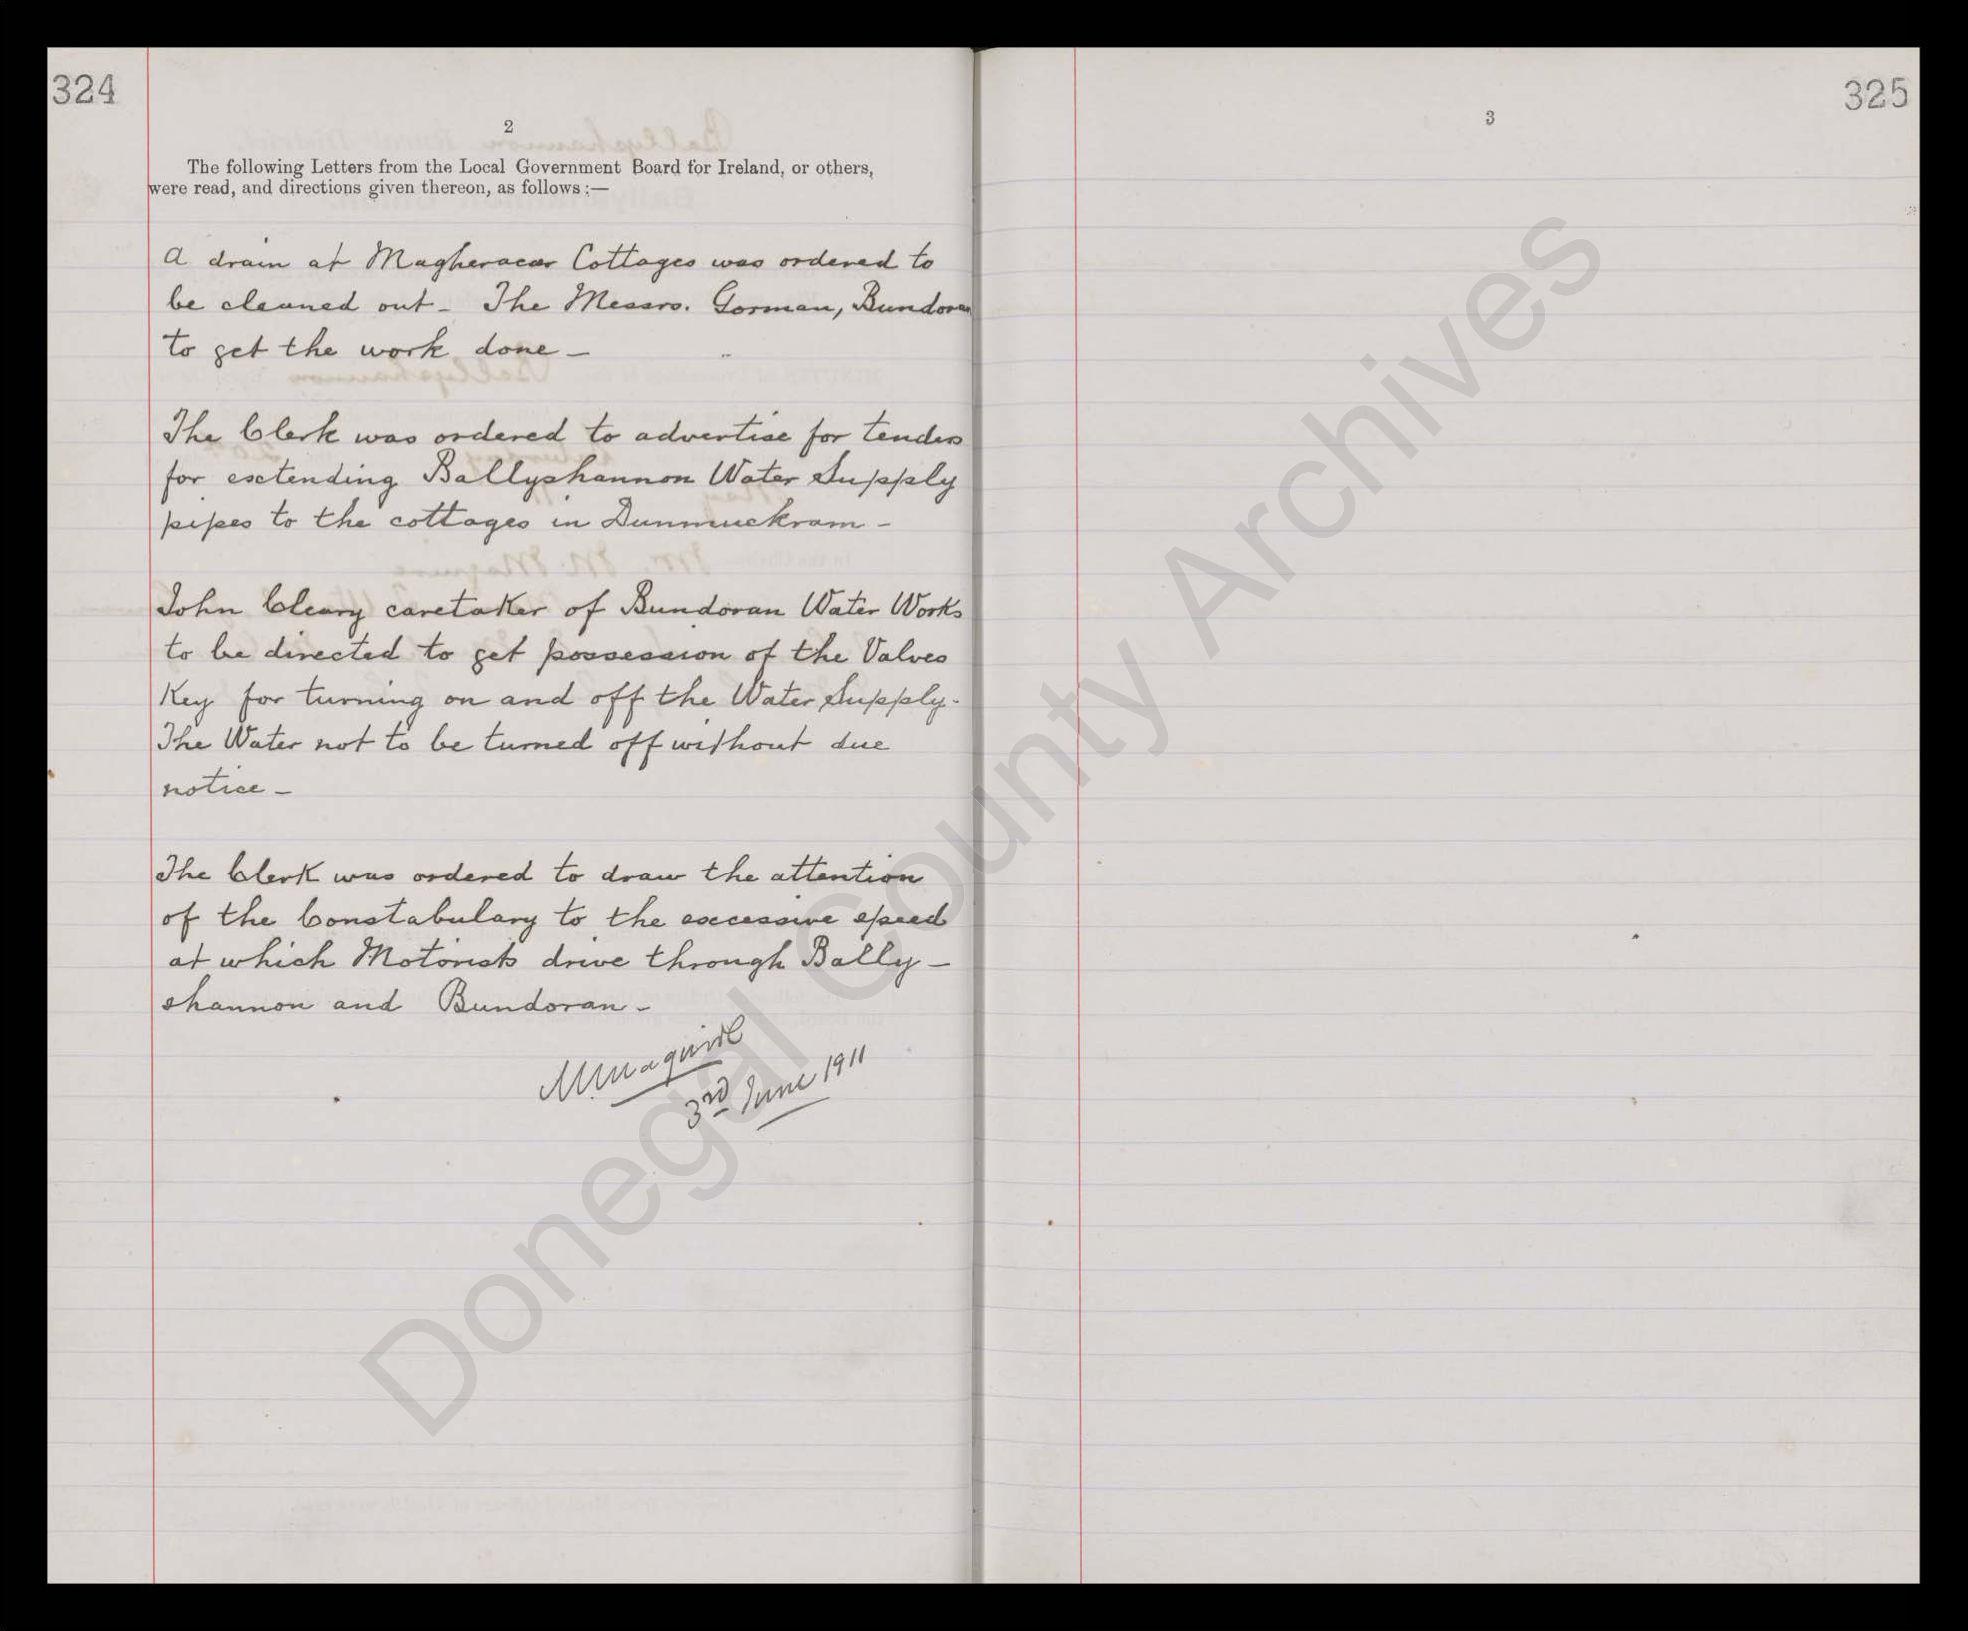 324
2
The following Letters from the Local Government Board for Ireland, or others,
were read, and directions given thereon, as follows :—
A drain at Magheracar Cottages was ordered to
be cleaned out - The Messrs. Gorman, Bundoran
to get the work done -
The Clerk was ordered to advertise for tenders
for extending Ballyshannon Water Supply
pipes to the cottages in Dunmuckram -
John Cleary caretaker of Bundoran Water Works
to be directed to get possession of the Valves
Key for turning on and off the Water Supply -
The Water not to be turned off without due
notice -
The Clerk was ordered to draw the attention
of the Constabulary to the excessive speed
at which Motorists drive through Bally-
shannon and Bundoran -
M Maguire
3rd June 1911
325
3
Donegal County Archives